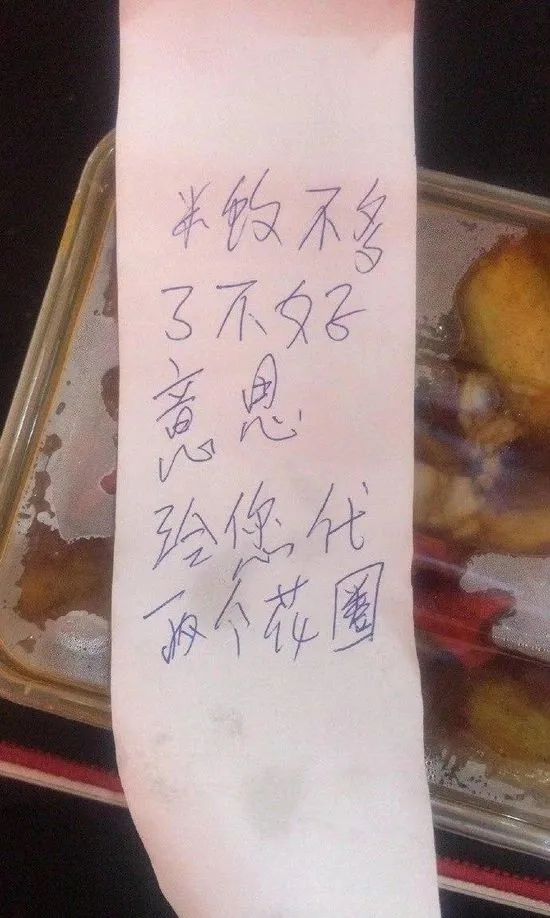 米蚊不多
了不好
意思
给您代
两个花圈